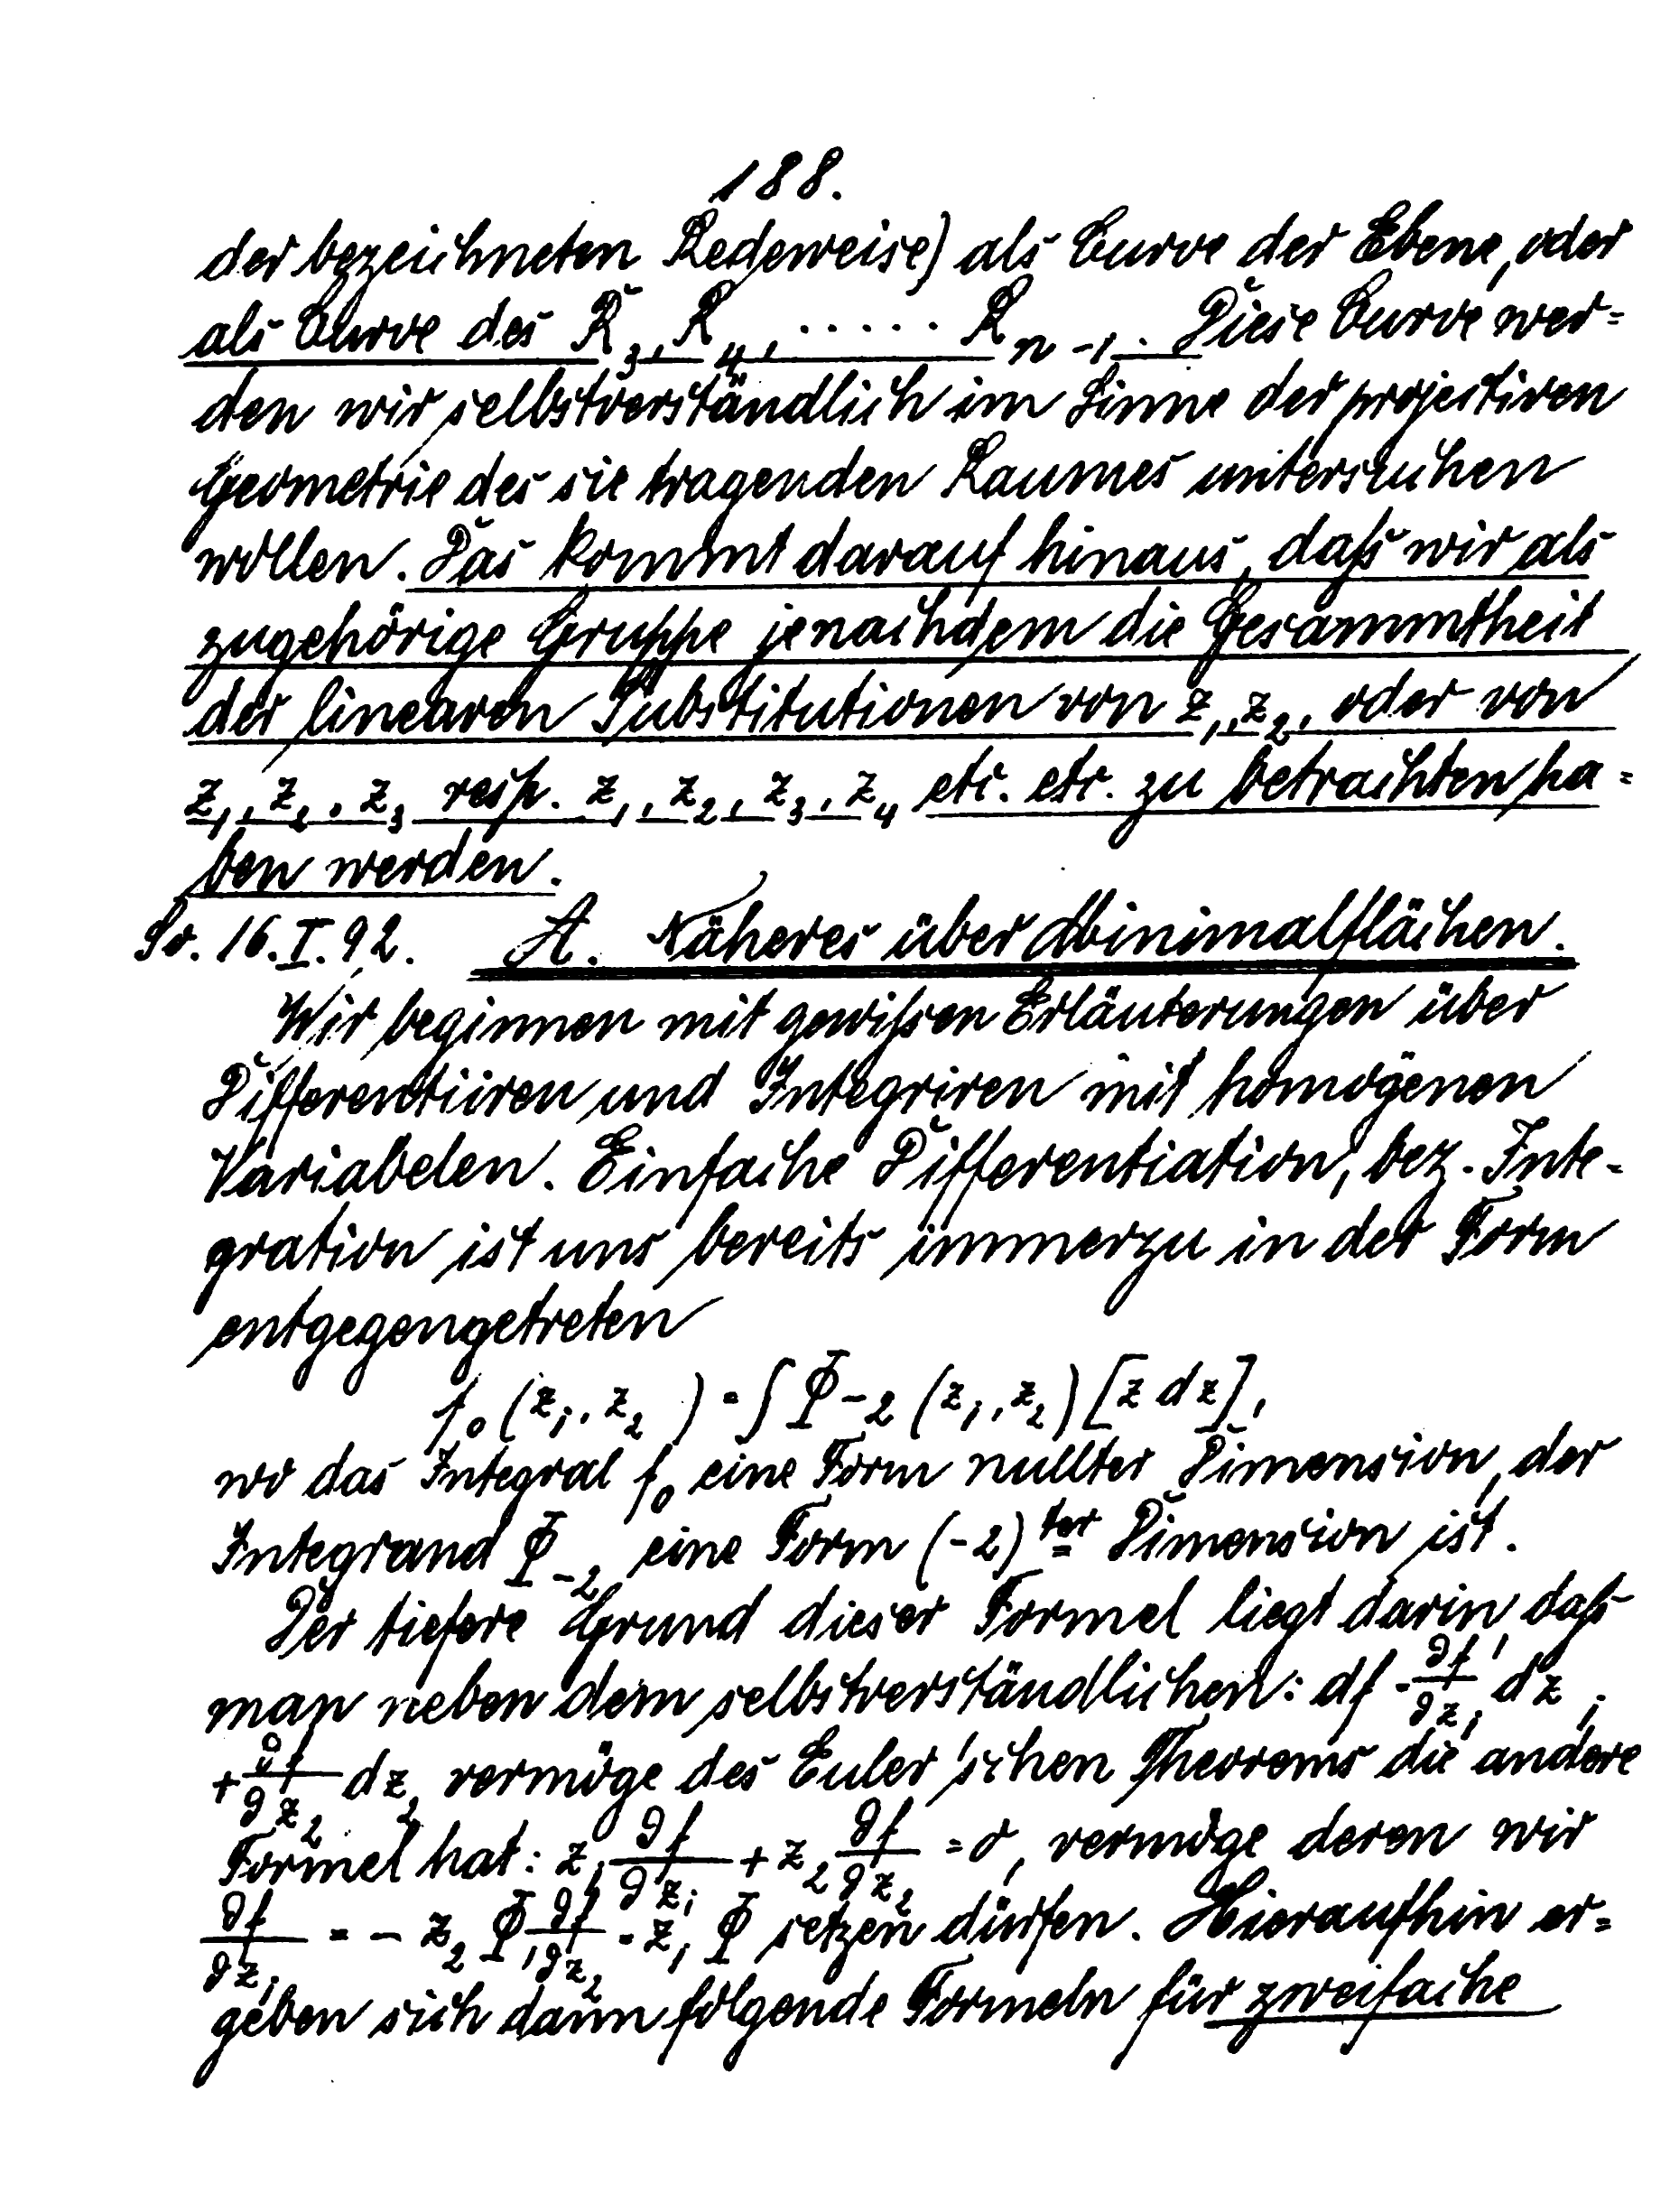 188.
der bezeichneten Redeweise) als Curve der Ebene, oder
als Curve des R₃, R₄, ..... Rₙ₋₁. Diese Curve wer=
den wir selbstverständlich im Sinne der projectiven
Geometrie des sie tragenden Raumes untersuchen
wollen. Das kommt darauf hinaus, daß wir als
zugehörige Gruppe jenachdem die Gesammtheit
der linearen Substitutionen von z₁, z₂, oder von
z₁, z₂, z₃ resp. z₁, z₂, z₃, z₄ etc. etc. zu betrachten ha=
ben werden.
So. 16.I.92. A. Näheres über Minimalflächen.
Wir beginnen mit gewißen Erläuterungen über
Differentiiren und Integriren mit homogenen
Variabelen. Einfache Differentiation, bez. Inte-
gration ist uns bereits immerzu in der Form
entgegengetreten
f₀ (z₁, z₂) = ∫ Φ₋₂ (z₁, z₂) [z dz],
wo das Integral f₀ eine Form nullter Dimension, der
Integrand Φ₋₂ eine Form (-2)ter Dimension ist.
Der tiefere Grund dieser Formel liegt darin, daß
man neben dem selbstverständlichen: df = ∂f/∂z₁ dz₁
+ ∂f/∂z₂ dz₂ vermöge des Euler'schen Theorems die andere
Formel hat: z₁ ∂f/∂z₁ + z₂ ∂f/∂z₂ = 0, vermöge deren wir
∂f/∂z₁ = - z₂ Φ, ∂f/∂z₂ = z₁ Φ setzen dürfen. Hieraufhin er=
geben sich dann folgende Formeln für zweifache